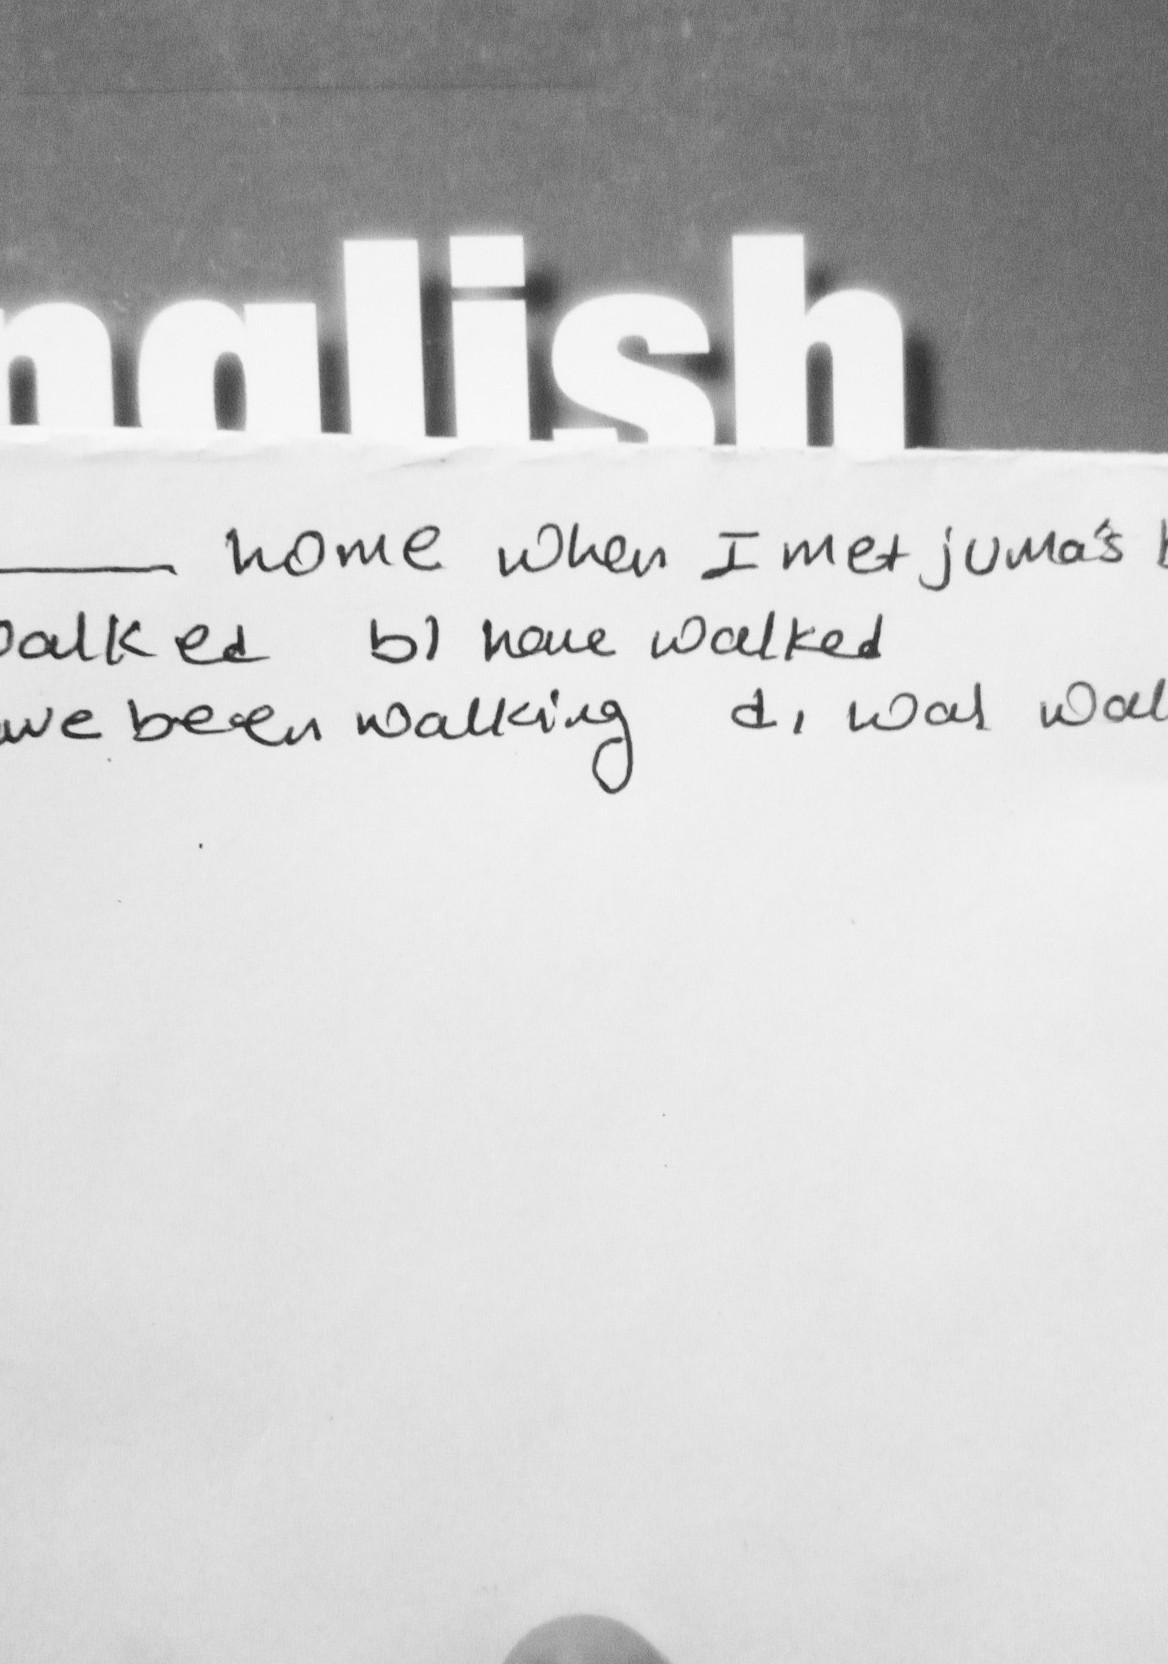 nglish
home when I met juma's
walked b) have walked
ave been walking d, was wal